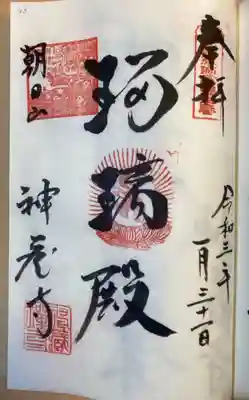 奉拝
令和三年
一月三十一日
瑠璃殿
朝日山
神蔵寺